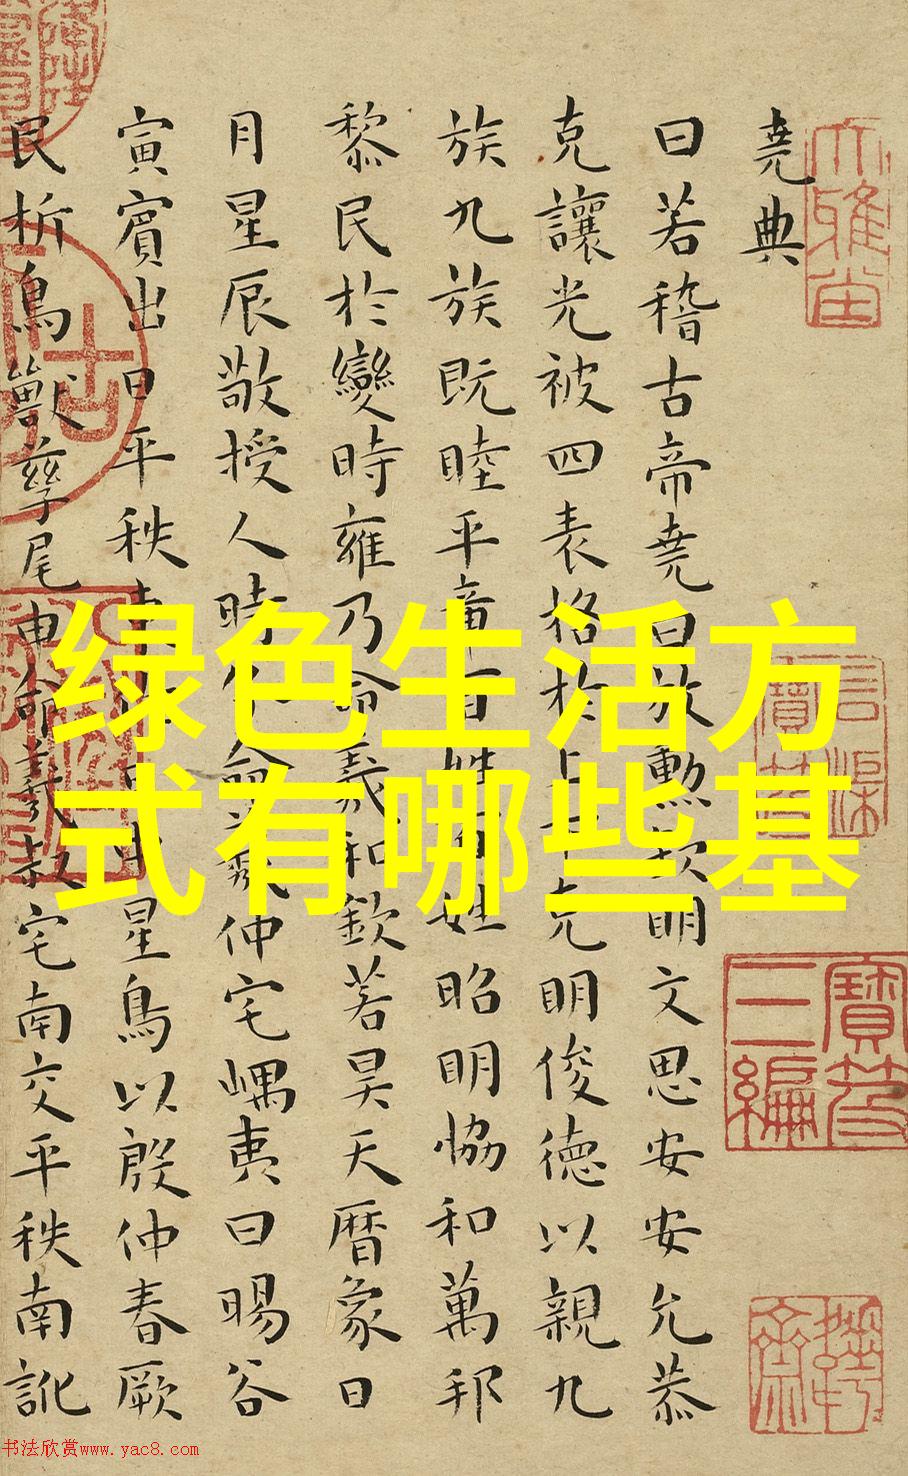 堯典
曰若稽古帝堯曰放勳欽明文思安安允恭
克讓光被四表格於上下克明俊德以親九
族九族既睦平章百姓百姓昭明協和萬邦
黎民於變時雍乃命羲和欽若昊天曆象日
月星辰敬授人時命羲仲宅嵎夷曰暘谷
寅賓出日平秩東作日中星鳥以殷仲春厥
民析鳥獸孳尾申命羲叔宅南交平秩南訛
绿色生活方
式有哪些基
大雅
寶笈
三編
书法欣赏www.yac8.com